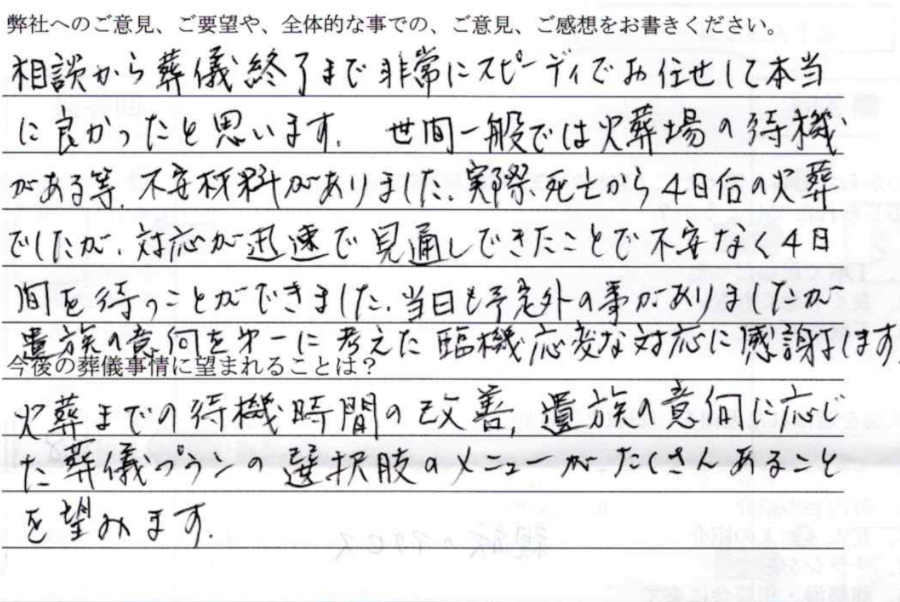 弊社へのご意見、ご要望や、全体的な事での、ご意見、ご感想をお書きください。
相談から葬儀終了まで非常にスピーディでお任せして本当
に良かったと思います。世間一般では火葬場の待機
がある等、不安材料がありました。実際死亡から4日后の火葬
でしたが、対応が迅速で見通しできたことで不安なく4日
間を待つことができました。当日も予定外の事がありましたが
遺族の意向を第一に考えた臨機応変な対応に感謝します
今後の葬儀事情に望まれることは?
火葬までの待機時間の改善、遺族の意向に応じ
た葬儀プランの選択肢のメニューがたくさんあること
を望みます。